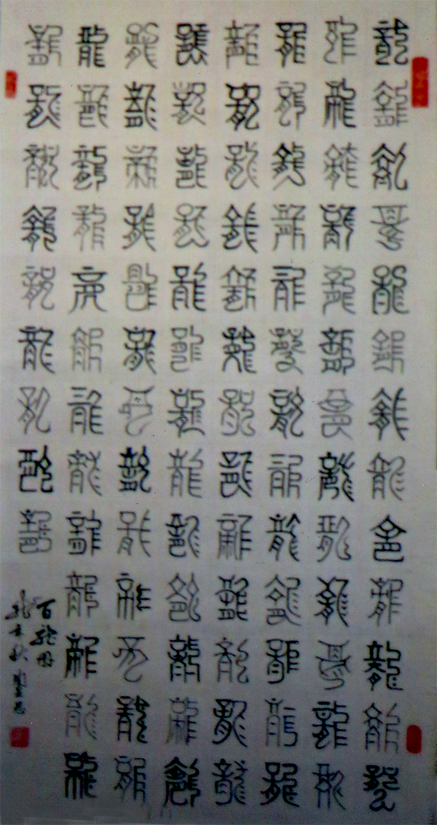 龍龍龍龍龍龍龍龍龍龍龍龍龍
龍龍龍龍龍龍龍龍龍龍龍龍龍
龍龍龍龍龍龍龍龍龍龍龍龍龍
龍龍龍龍龍龍龍龍龍龍龍龍龍
龍龍龍龍龍龍龍龍龍龍龍龍龍
龍龍龍龍龍龍龍龍龍龍龍龍龍
龍龍龍龍龍龍龍龍龍龍龍龍龍
龍龍龍龍龍龍龍龍龍
百龍圖
龍年秋